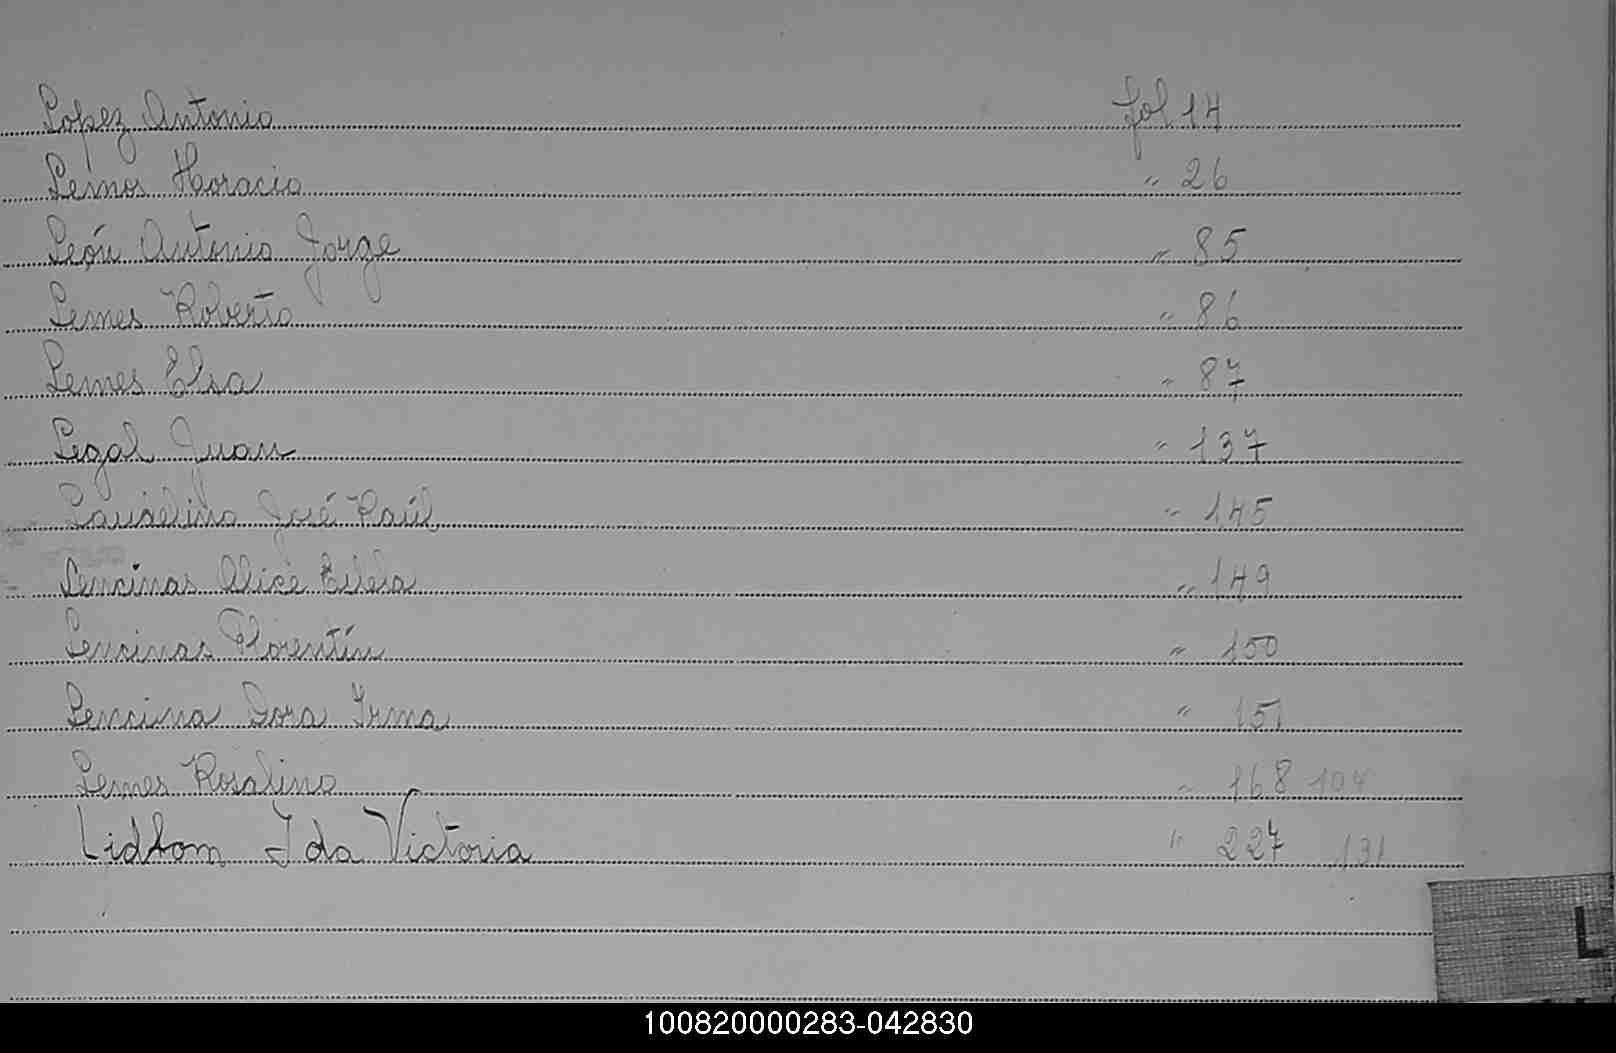 Lopez Antonio fol 14
Lemos Horacio " 26
León Antonio Jorge " 85
Lemes Roberto " 86
Lemes Elsa " 87
Legal Juan " 137
Laudelino José Raúl " 145
Lencinas Alice " 149
Lencinas Florentín " 150
Lencina Dora Irma " 151
Lemes Rosalino " 168 104
Lidtom Ida Victoria " 227 131
L
100820000283-042830